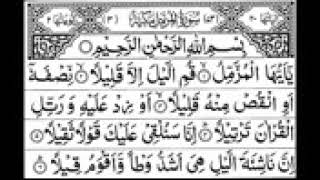 سُوْرَةُ الْمُزَّمِّلِ مَكِّيَّةٌ
بِسْمِ اللهِ الرَّحْمٰنِ الرَّحِيْمِ
يٰۤاَيُّهَا الْمُزَّمِّلُ ۝ قُمِ الَّيْلَ اِلَّا قَلِيْلًا ۝ نِّصْفَهٗۤ
اَوِ انْقُصْ مِنْهُ قَلِيْلًا ۝ اَوْ زِدْ عَلَيْهِ وَ رَتِّلِ
الْقُرْاٰنَ تَرْتِيْلًا ۝ اِنَّا سَنُلْقِيْ عَلَيْكَ قَوْلًا ثَقِيْلًا ۝
اِنَّ نَاشِئَةَ الَّيْلِ هِيَ اَشَدُّ وَطْاً وَّ اَقْوَمُ قِيْلًا ۝